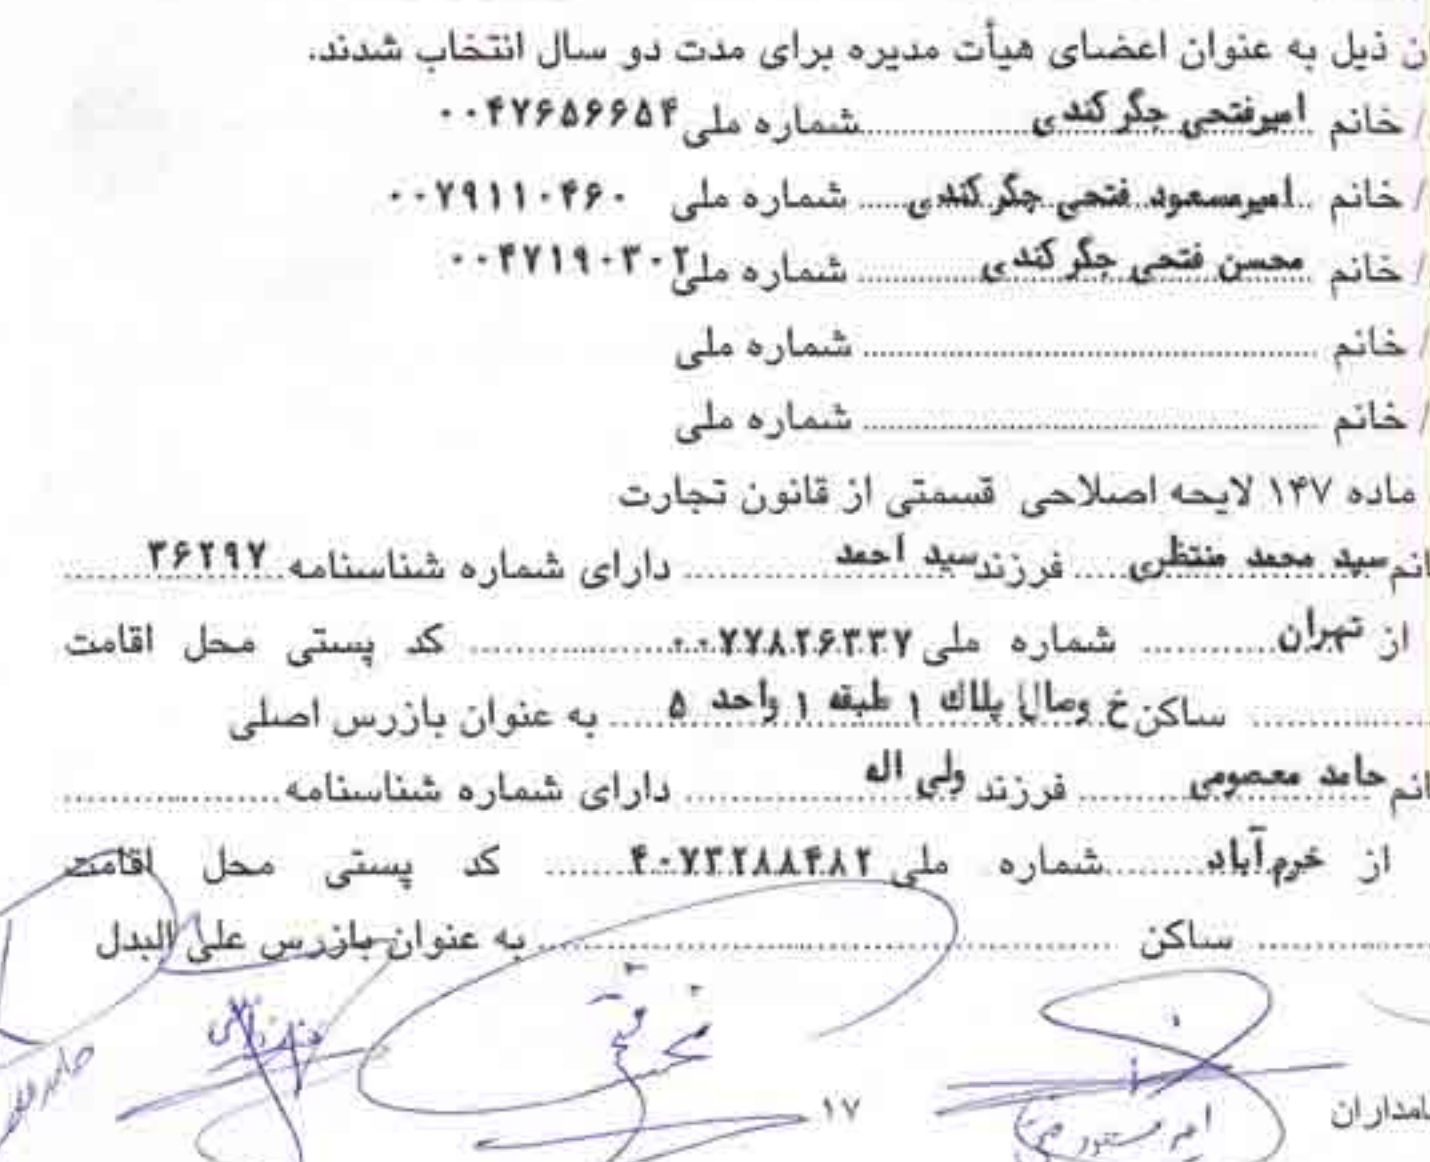 ن ذیل به عنوان اعضای هیأت مدیره برای مدت دو سال انتخاب شدند.
/ خانم امیرفتحی جگرکندی شماره ملی ۰۰۴۷۶۵۶۶۵۴
/ خانم امیرمسعود فتحی جگرکندی شماره ملی ۰۰۷۹۱۱۰۴۶۰
/ خانم محسن فتحی جگرکندی شماره ملی ۰۰۴۷۱۹۰۳۰۲
/ خانم شماره ملی
/ خانم شماره ملی
ماده ۱۴۷ لایحه اصلاحی قسمتی از قانون تجارت
انم سید محمد منتظری فرزند سید احمد دارای شماره شناسنامه ۳۶۲۹۷
از تهران شماره ملی ۰۰۷۷۸۲۶۳۳۷ کد پستی محل اقامت
ساکن خ وصال پلاک ۱ طبقه ۱ واحد ۵ به عنوان بازرس اصلی
انم حامد معصومی فرزند ولی اله دارای شماره شناسنامه
از خرم آباد شماره ملی ۴۰۷۳۲۸۸۴۸۲ کد پستی محل اقامت
ساکن به عنوان بازرس علی البدل
محسن فتحی
امیر مسعود فتحی
۱۷
امداران